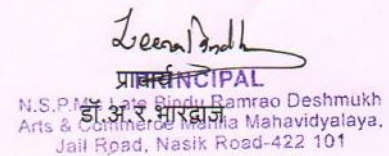 प्राचार्य PRINCIPAL
N.S.P.M. Late Bindu Ramrao Deshmukh
डॉ.अ.र.भारद्वाज
Arts & Commerce Mahila Mahavidyalaya,
Jail Road, Nasik Road-422 101